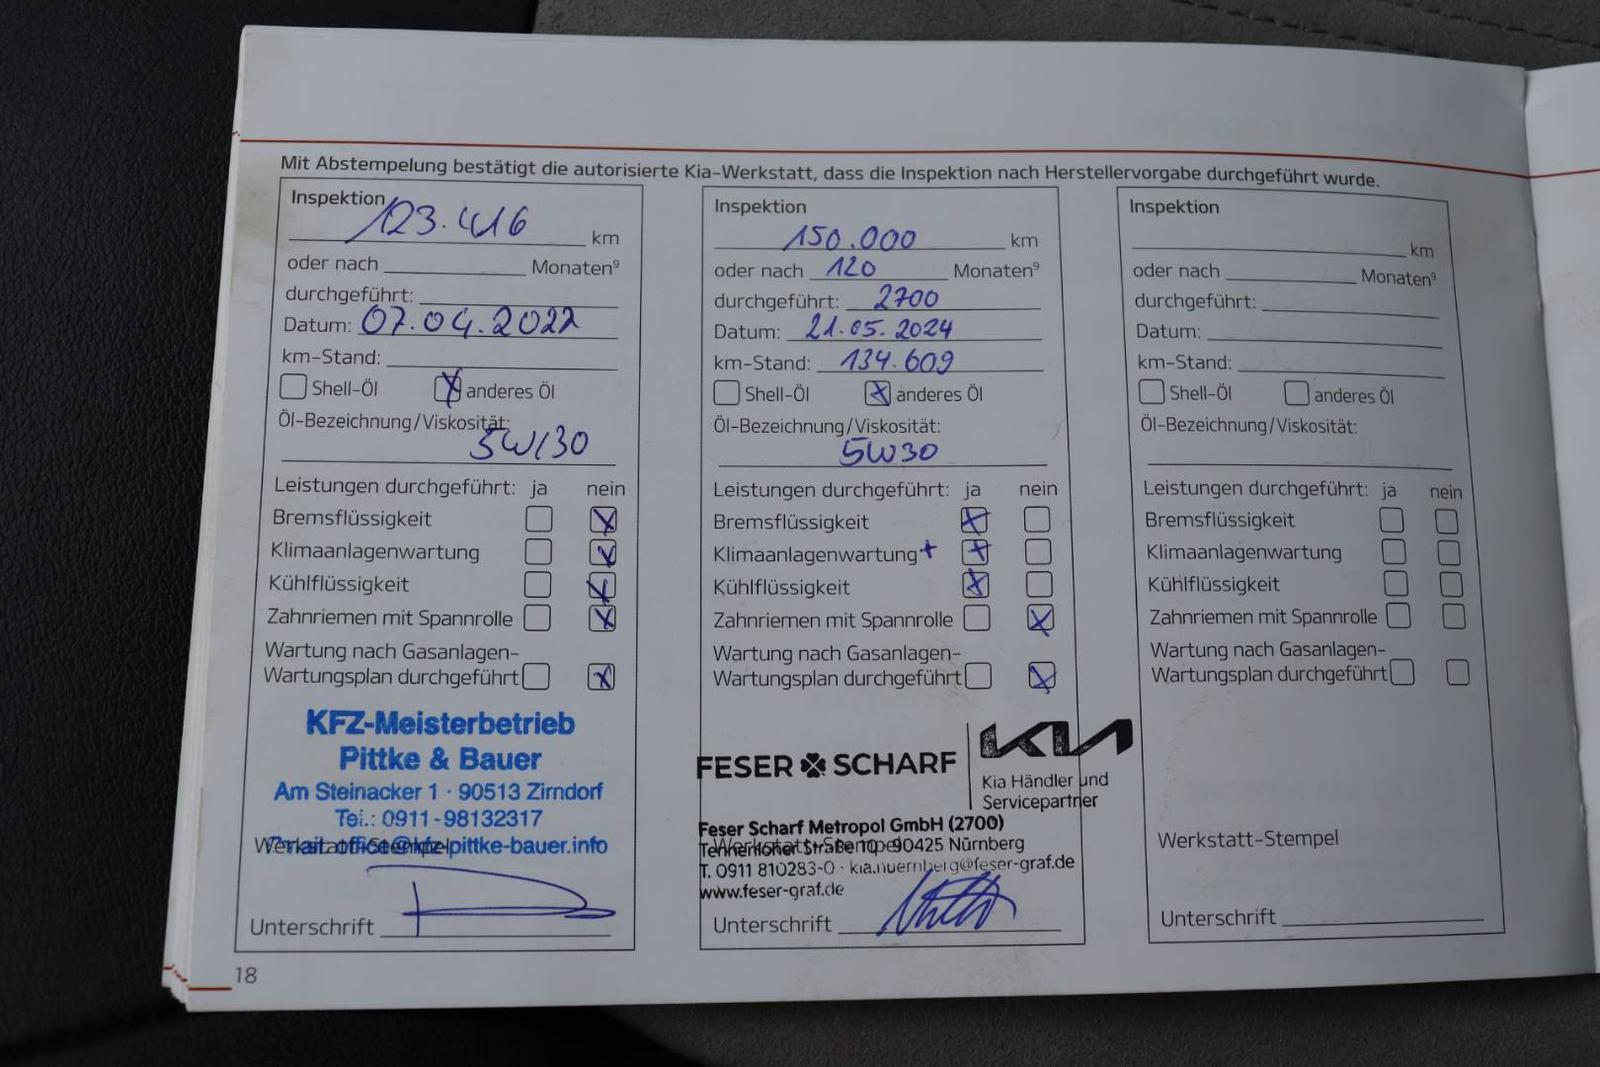 Mit Abstempelung bestätigt die autorisierte Kia-Werkstatt, dass die Inspektion nach Herstellervorgabe durchgeführt wurde.
Inspektion
123.416 km
oder nach Monaten⁹
durchgeführt:
Datum: 07.04.2022
km-Stand:
Shell-Öl anderes Öl
Öl-Bezeichnung/Viskosität:
5W/30
Leistungen durchgeführt: ja nein
Bremsflüssigkeit
Klimaanlagenwartung
Kühlflüssigkeit
Zahnriemen mit Spannrolle
Wartung nach Gasanlagen-
Wartungsplan durchgeführt
KFZ-Meisterbetrieb
Pittke & Bauer
Am Steinacker 1 · 90513 Zirndorf
Tel.: 0911-98132317
Werkstatt-Stempel
office@kfz-pittke-bauer.info
Unterschrift
Inspektion
150.000 km
oder nach 120 Monaten⁹
durchgeführt: 2700
Datum: 21.05.2024
km-Stand: 134.609
Shell-Öl anderes Öl
Öl-Bezeichnung/Viskosität:
5W30
Leistungen durchgeführt: ja nein
Bremsflüssigkeit
Klimaanlagenwartung +
Kühlflüssigkeit
Zahnriemen mit Spannrolle
Wartung nach Gasanlagen-
Wartungsplan durchgeführt
FESER SCHARF
KIA
Kia Händler und
Servicepartner
Feser Scharf Metropol GmbH (2700)
Werkstatt-Stempel
Tennenloher Straße 10 · 90425 Nürnberg
T. 0911 810283-0 · kia.nuernberg@feser-graf.de
www.feser-graf.de
Unterschrift
Inspektion
km
oder nach Monaten⁹
durchgeführt:
Datum:
km-Stand:
Shell-Öl anderes Öl
Öl-Bezeichnung/Viskosität:
Leistungen durchgeführt: ja nein
Bremsflüssigkeit
Klimaanlagenwartung
Kühlflüssigkeit
Zahnriemen mit Spannrolle
Wartung nach Gasanlagen-
Wartungsplan durchgeführt
Werkstatt-Stempel
Unterschrift
18